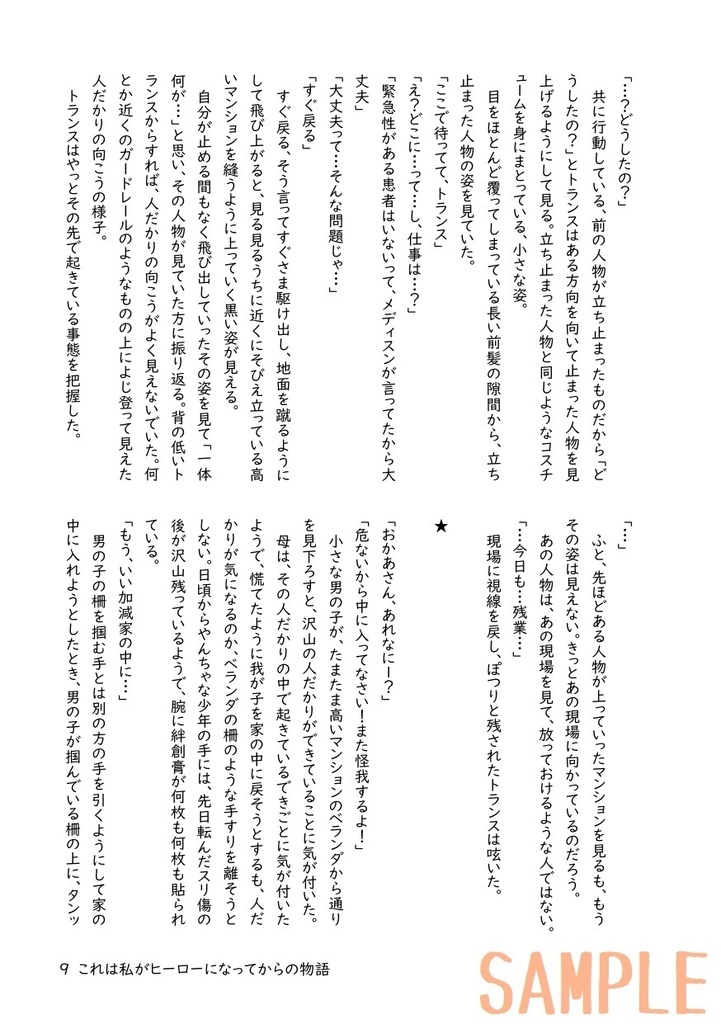 「…？どうしたの？」
　共に行動している、前の人物が立ち止まったものだから「ど
うしたの？」とトランスはある方向を向いて止まった人物を見
上げるようにして見る。立ち止まった人物と同じようなコスチ
ュームを身にまとっている、小さな姿。
　目をほとんど覆ってしまっている長い前髪の隙間から、立ち
止まった人物の姿を見ていた。
「ここで待ってて、トランス」
「え？どこに…って…し、仕事は…？」
「緊急性がある患者はいないって、メディスンが言ってたから大
丈夫」
「大丈夫って…そんな問題じゃ…」
「すぐ戻る」
　すぐ戻る、そう言ってすぐさま駆け出し、地面を蹴るように
して飛び上がると、見る見るうちに近くにそびえ立っている高
いマンションを縫うように上っていく黒い姿が見える。
　自分が止める間もなく飛び出していったその姿を見て「一体
何が…」と思い、その人物が見ていた方に振り返る。背の低いト
ランスからすれば、人だかりの向こうがよく見えないでいた。何
とか近くのガードレールのようなものの上によじ登って見えた
人だかりの向こうの様子。
　トランスはやっとその先で起きている事態を把握した。
「…」
　ふと、先ほどある人物が上っていったマンションを見るも、もう
その姿は見えない。きっとあの現場に向かっているのだろう。
　あの人物は、あの現場を見て、放っておけるような人ではない。
「…今日も…残業…」
　現場に視線を戻し、ぽつりと残されたトランスは呟いた。
★
「おかあさん、あれなにー？」
「危ないから中に入ってなさい！また怪我するよ！」
　小さな男の子が、たまたま高いマンションのベランダから通り
を見下ろすと、沢山の人だかりができていることに気が付いた。
　母は、その人だかりの中で起きているできごとに気が付いた
ようで、慌てたように我が子を家の中に戻そうとするも、人だ
かりが気になるのか、ベランダの柵のような手すりを離そうと
しない。日頃からやんちゃな少年の手には、先日転んだスリ傷の
後が沢山残っているようで、腕に絆創膏が何枚も何枚も貼られ
ている。
「もう、いい加減家の中に…」
　男の子の柵を掴む手とは別の方の手を引くようにして家の
中に入れようとしたとき、男の子が掴んでいる柵の上に、タンッ
9 これは私がヒーローになってからの物語
SAMPLE